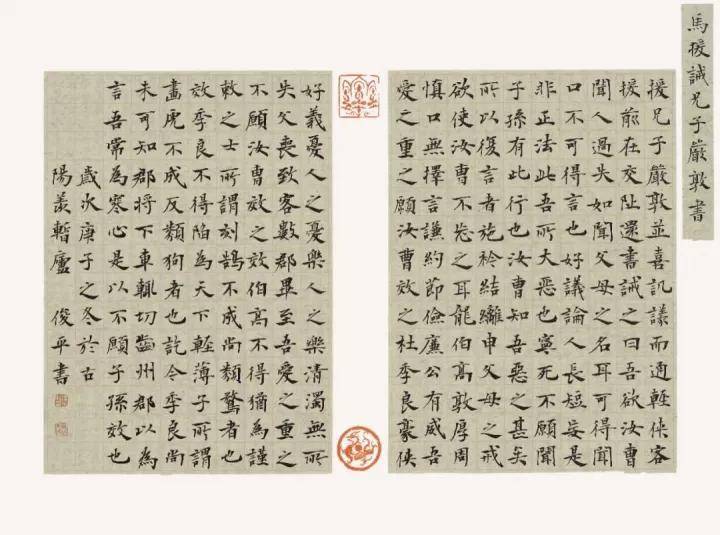 馬援誡兄子嚴敦書
援兄子嚴敦並喜譏議而通輕俠客
援前在交阯還書誡之曰吾欲汝曹
聞人過失如聞父母之名耳可得聞
口不可得言也好議論人長短妄是
非正法此吾所大惡也寧死不願聞
子孫有此行也汝曹知吾惡之甚矣
所以復言者施衿結縭申父母之戒
欲使汝曹不忘之耳龍伯高敦厚周
慎口無擇言謙約節儉廉公有威吾
愛之重之願汝曹效之杜季良豪俠
好義憂人之憂樂人之樂清濁無所
失父喪致客數郡畢至吾愛之重之
不願汝曹效之效伯高不得猶為謹
敕之士所謂刻鵠不成尚類鶩者也
效季良不得陷為天下輕薄子所謂
畫虎不成反類狗者也訖今季良尚
未可知郡將下車輒切齒州郡以為
言吾常為寒心是以不願子孫效也
歲次庚子之冬於古
陽羨暫廬 俊平書